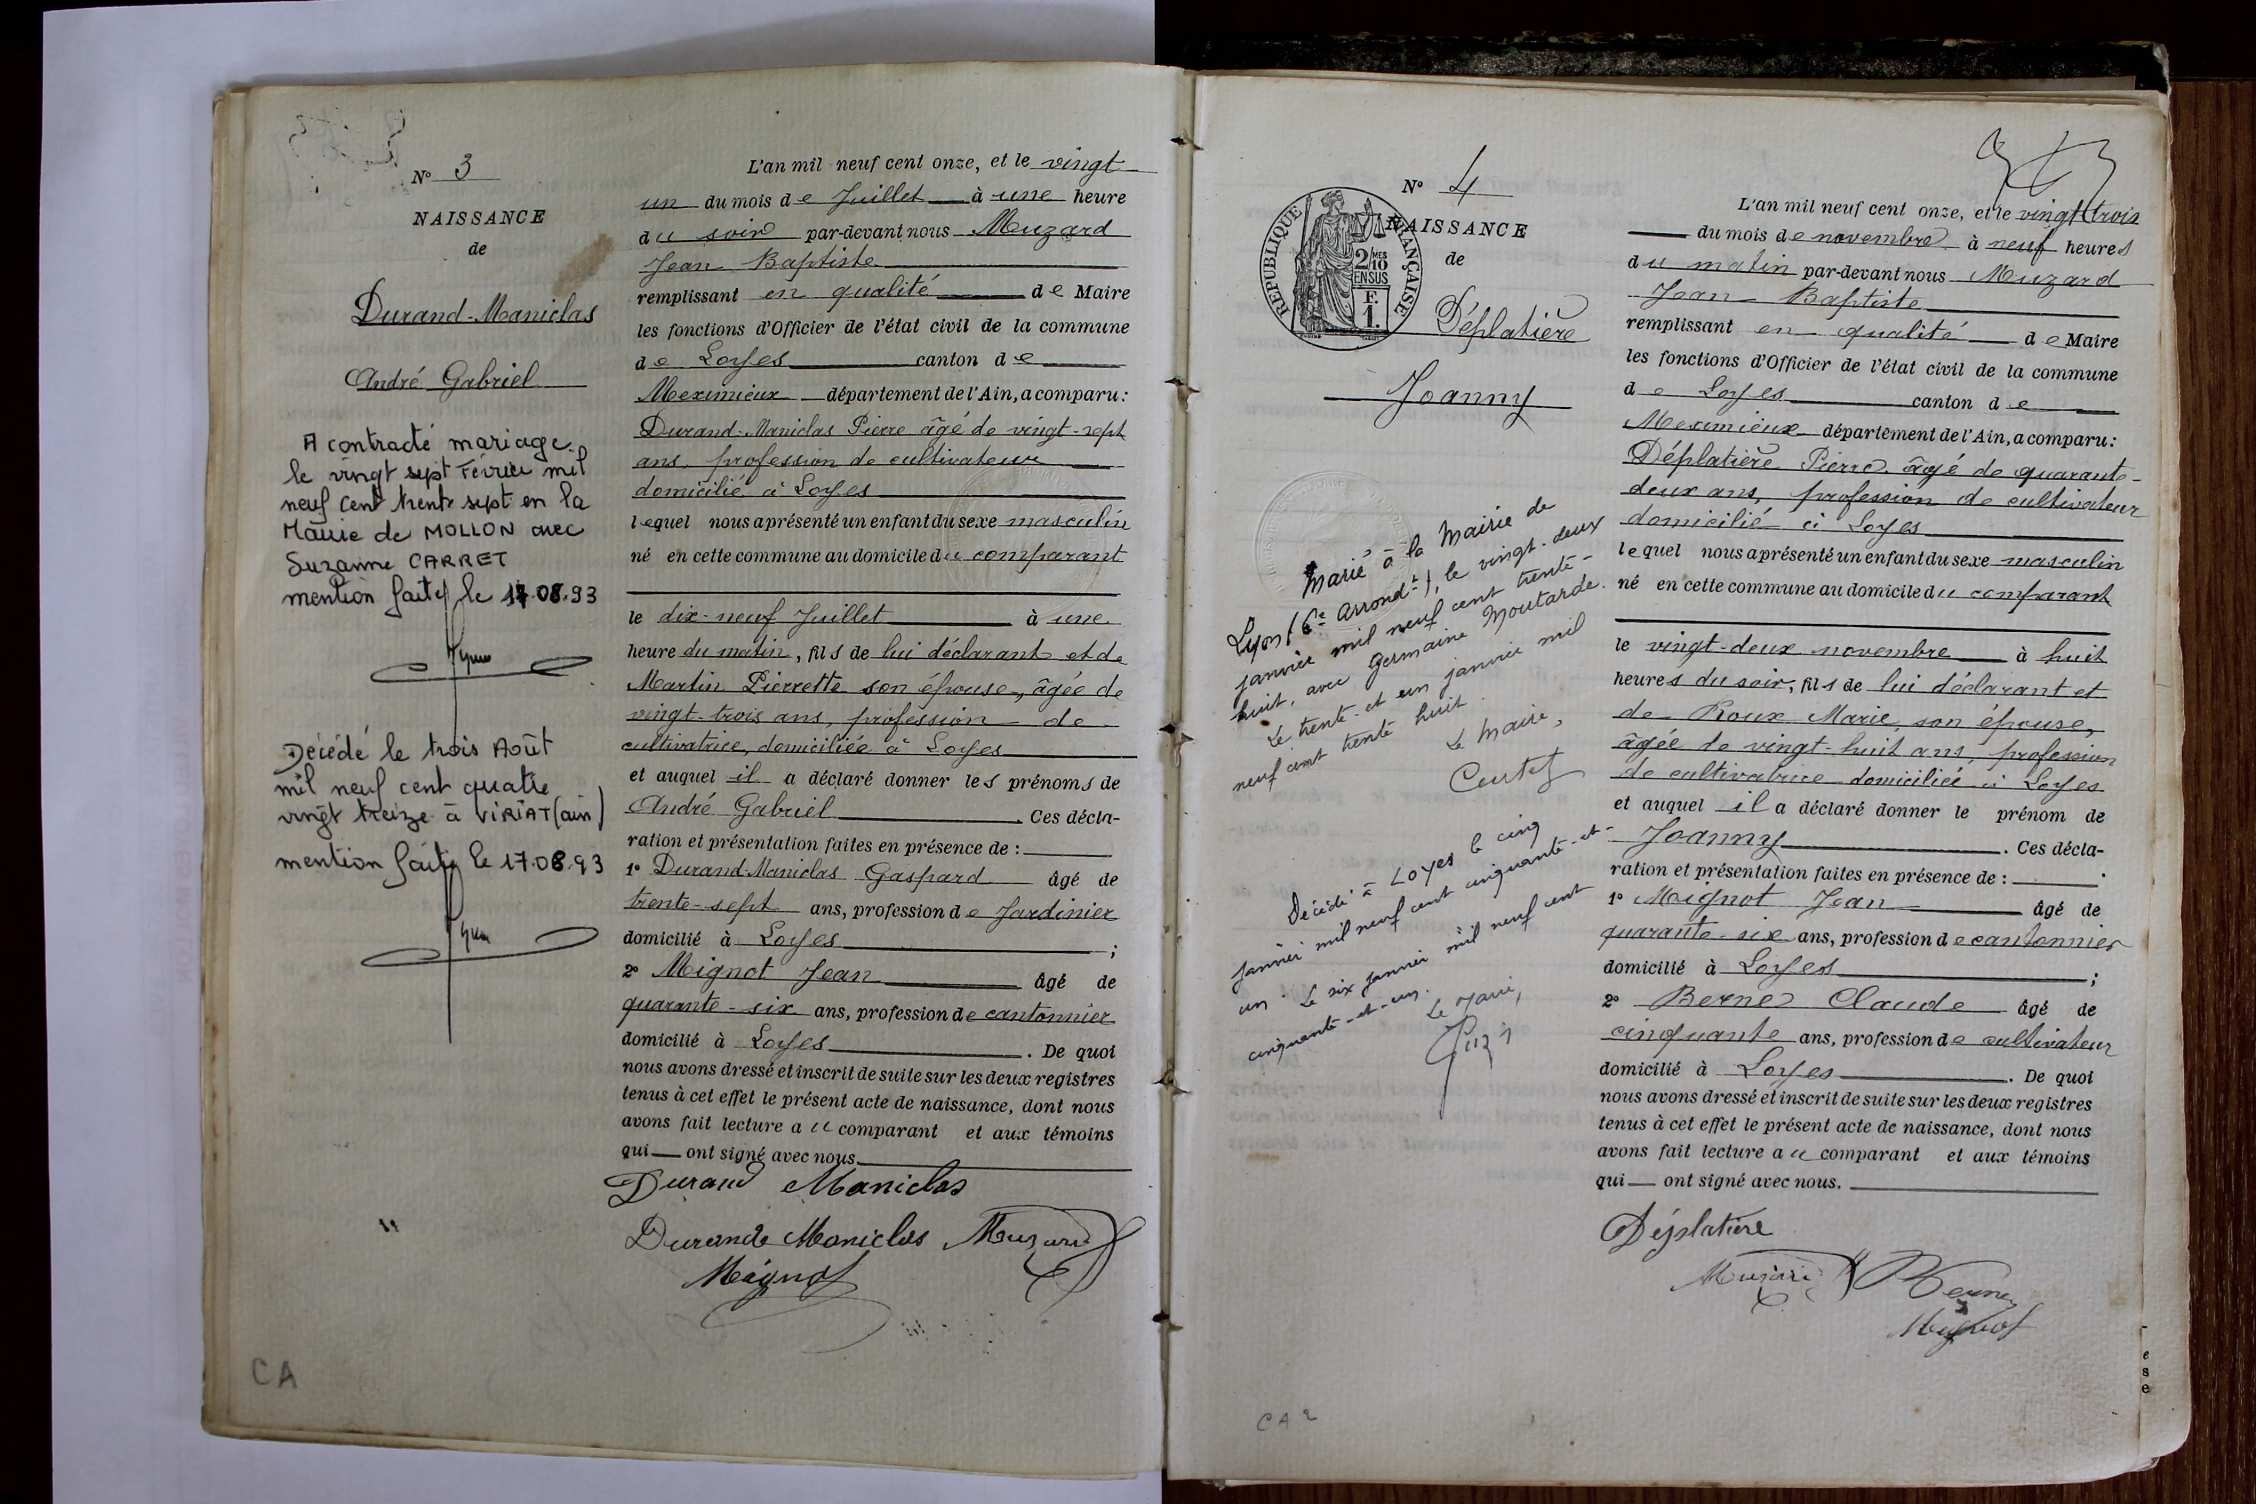 N° 3
NAISSANCE
de
Durand-Maniclas
André Gabriel
A contracté mariage
le vingt sept Février mil
neuf cent trente sept en la
Mairie de MOLLON avec
Suzanne CARRET
mention faite le 17.08.93
Décédé le trois Août
mil neuf cent quatre
vingt treize à VIRIAT (ain)
mention faite le 17.08.93
CA
L'an mil neuf cent onze, et le vingt
un du mois de Juillet à une heure
du soir par-devant nous Muzard
Jean Baptiste
remplissant en qualité de Maire
les fonctions d'Officier de l'état civil de la commune
de Loyes canton de
Meximieux département de l'Ain, a comparu:
Durand-Maniclas Pierre âgé de vingt-sept
ans, profession de cultivateur
domicilié à Loyes
lequel nous a présenté un enfant du sexe masculin
né en cette commune au domicile du comparant
le dix-neuf Juillet à une
heure du matin, fils de lui déclarant et de
Martin Pierrette son épouse, âgée de
vingt-trois ans, profession de
cultivatrice, domiciliée à Loyes
et auquel il a déclaré donner les prénoms de
André Gabriel. Ces décla-
ration et présentation faites en présence de :
1° Durand-Maniclas Gaspard âgé de
trente-sept ans, profession de Jardinier
domicilié à Loyes ;
2° Mignot Jean âgé de
quarante-six ans, profession de cantonnier
domicilié à Loyes. De quoi
nous avons dressé et inscrit de suite sur les deux registres
tenus à cet effet le présent acte de naissance, dont nous
avons fait lecture au comparant et aux témoins
qui ont signé avec nous
Durand Maniclas
Durand Maniclas Muzard
Mignot
N° 4
NAISSANCE
de
RÉPUBLIQUE FRANÇAISE
2/10 MES
EN SUS
F.
1.
Déplatière
Joanny
Marié à la Mairie de
Lyon (6e arrondt), le vingt-deux
janvier mil neuf cent trente-
huit, avec Germaine Moutarde.
Le trente-et-un janvier mil
neuf cent trente huit.
Le Maire,
Décédé à Loyes le cinq
janvier mil neuf cent cinquante-et-
un. Le six janvier mil neuf cent
cinquante-et-un.
Le Maire,
CA 2
L'an mil neuf cent onze, et le vingt-trois
du mois de novembre à neuf heures
du matin par-devant nous Muzard
Jean Baptiste
remplissant en qualité de Maire
les fonctions d'Officier de l'état civil de la commune
de Loyes canton de
Meximieux département de l'Ain, a comparu:
Déplatière Pierre âgé de quarante-
deux ans, profession de cultivateur
domicilié à Loyes
lequel nous a présenté un enfant du sexe masculin
né en cette commune au domicile du comparant
le vingt-deux novembre à huit
heures du soir, fils de lui déclarant et
de Roux Marie son épouse,
âgée de vingt-huit ans, profession
de cultivatrice domiciliée à Loyes
et auquel il a déclaré donner le prénom de
Joanny. Ces décla-
ration et présentation faites en présence de :
1° Mignot Jean âgé de
quarante-six ans, profession de cantonnier
domicilié à Loyes ;
2° Berne Claude âgé de
cinquante ans, profession de cultivateur
domicilié à Loyes. De quoi
nous avons dressé et inscrit de suite sur les deux registres
tenus à cet effet le présent acte de naissance, dont nous
avons fait lecture au comparant et aux témoins
qui ont signé avec nous.
Déplatière
Muzard Berne
Mignot
e
s
e